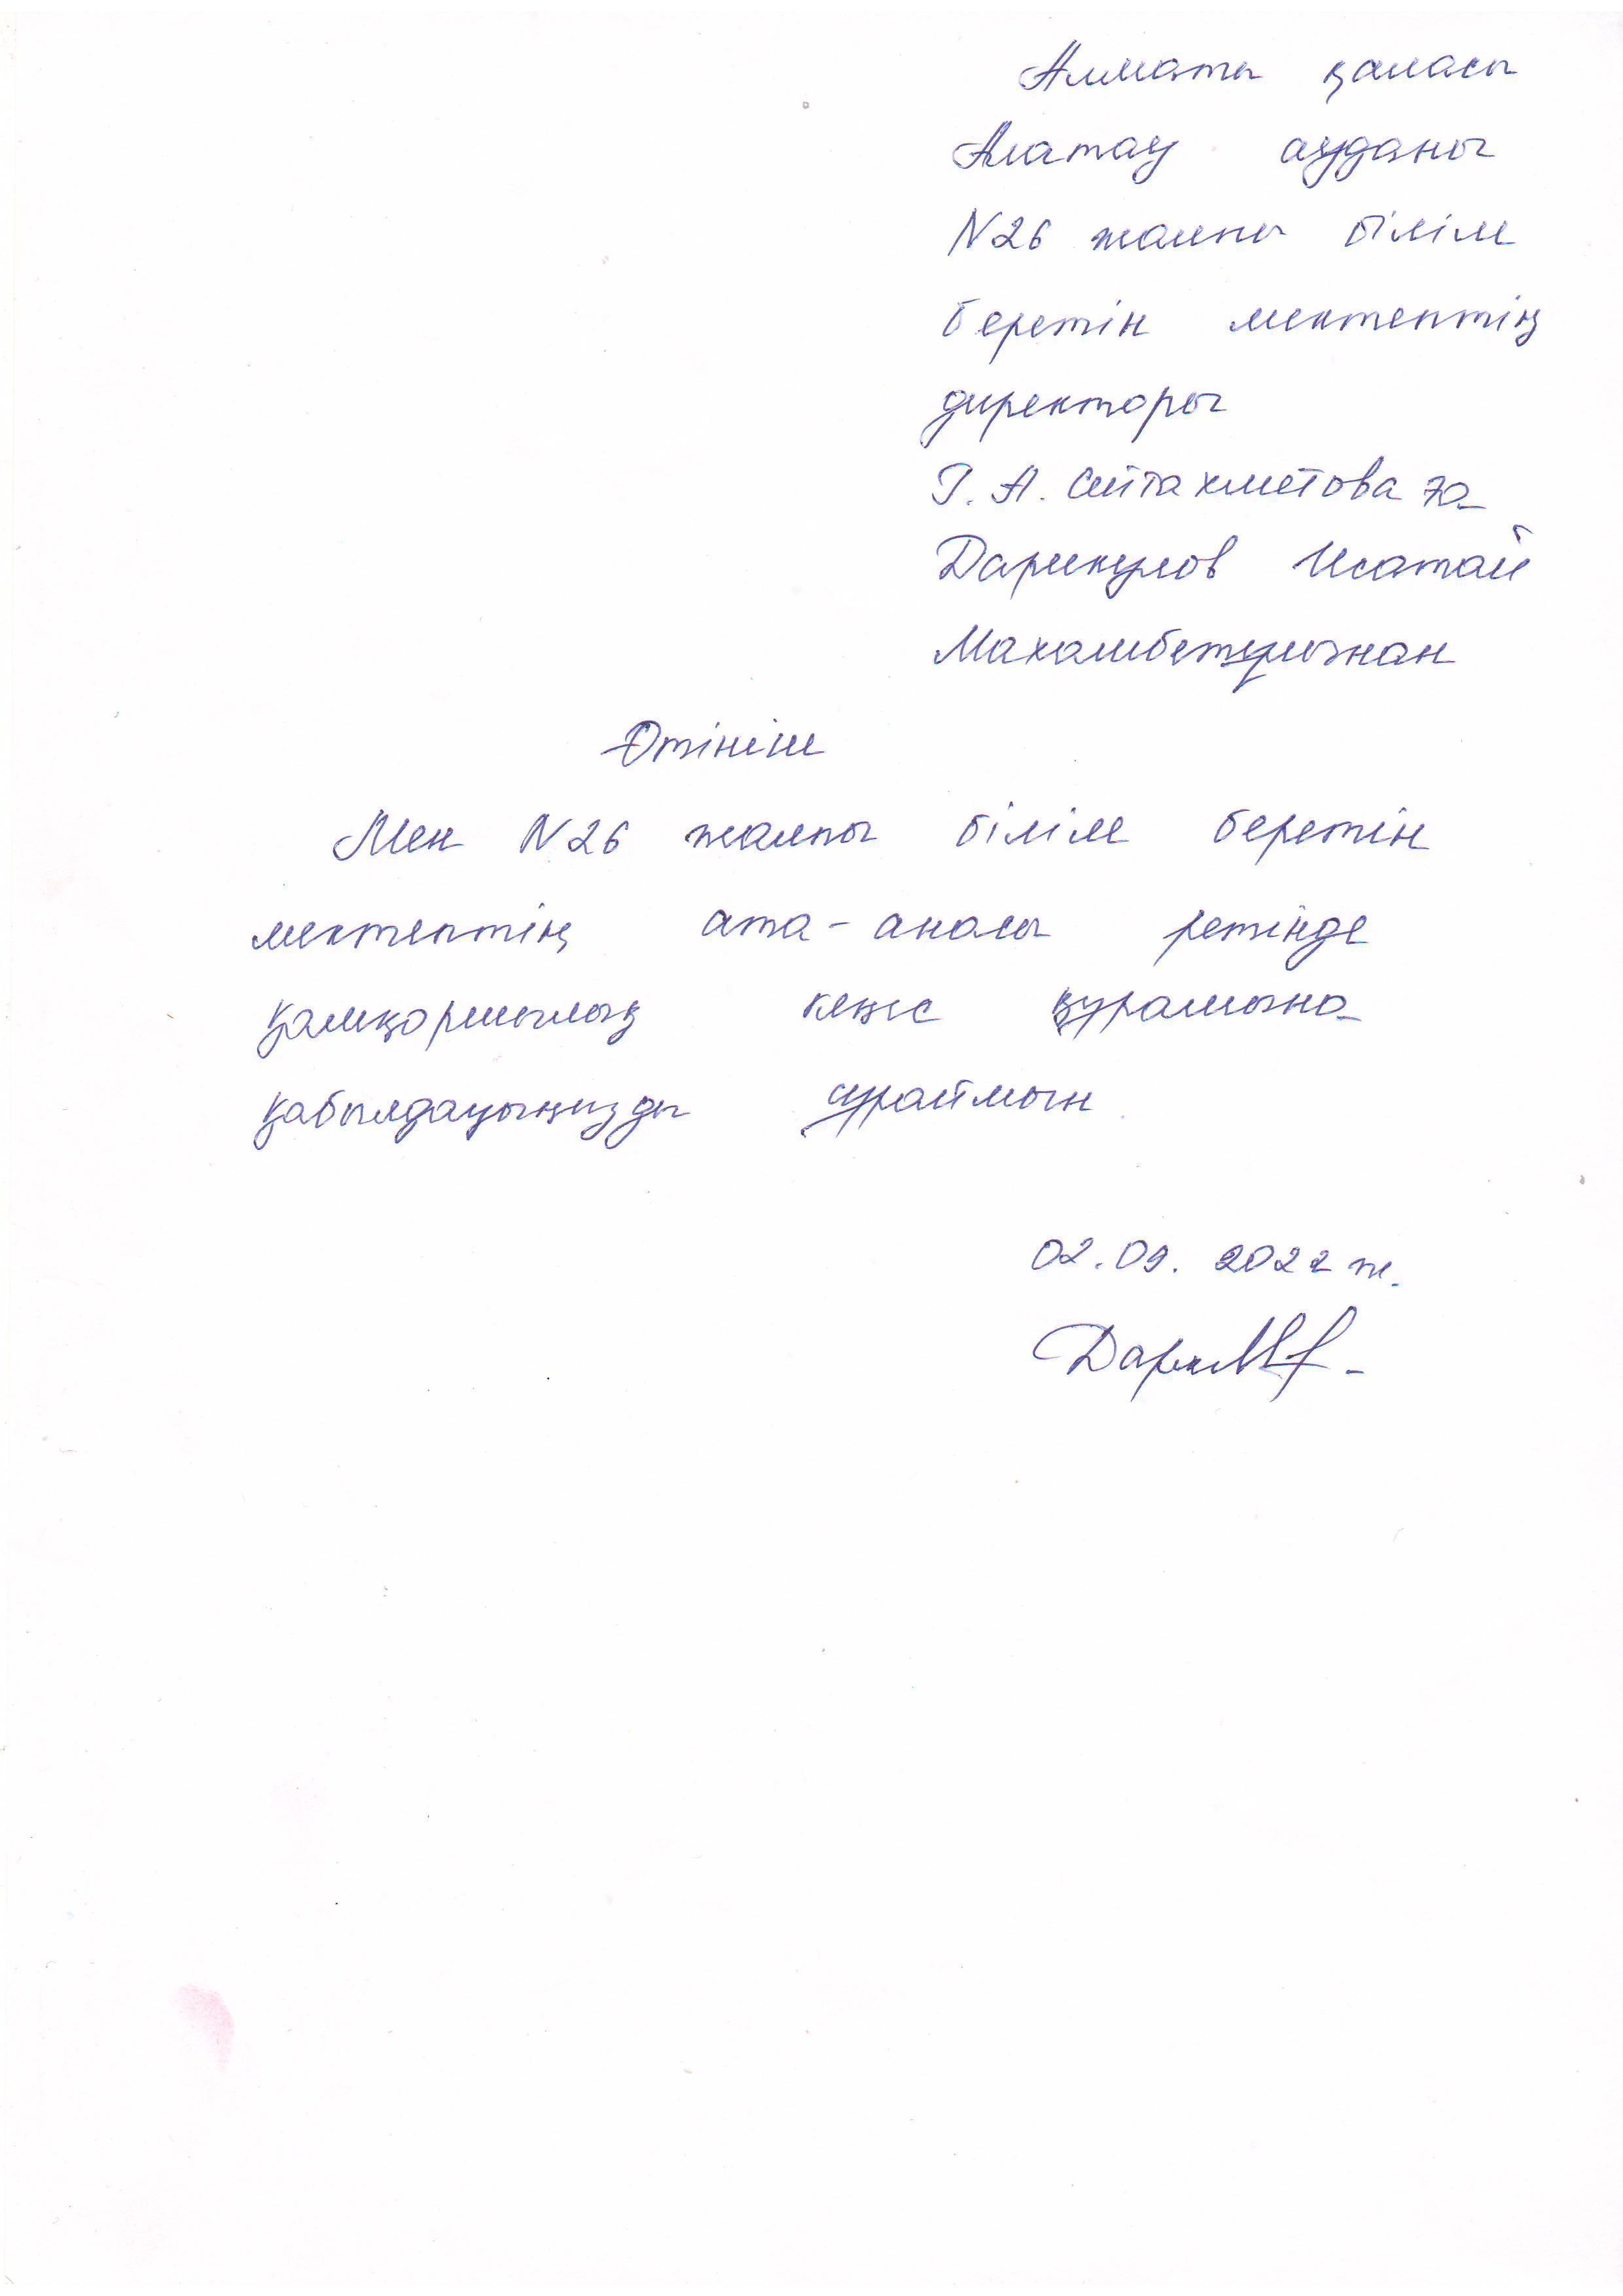 Алматы қаласы
Алатау ауданы
N26 жалпы білім
беретін мектептің
директоры
Г. А. Сейтахметова ға
Дарикулов Исатай
Махамбетұлынан
Өтініш
Мен N26 жалпы білім беретін
мектептің ата-анасы ретінде
қамқоршылық кеңес құрамына
қабылдауыңызды сұраймын
02.09.2022 ж.